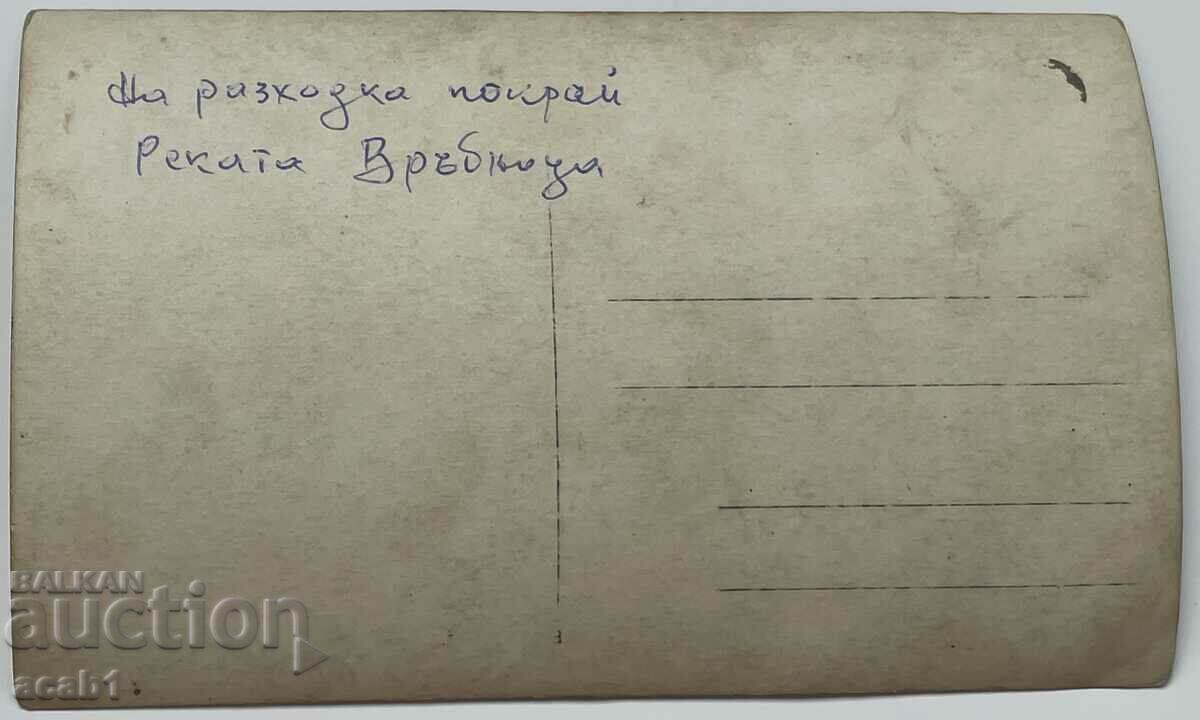 На разходка покрай
Реката Връбница
BALKAN
auction
acab1